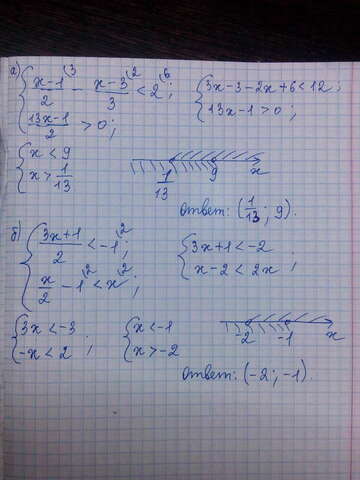 а) { (x-1)/2 (3 - (x-3)/3 (2 < 2 (6 ; { 3x-3-2x+6<12;
(13x-1)/2 > 0; 13x-1>0;
{ x<9
x> 1/13 1/13 9 x
ответ: (1/13; 9).
б) { (3x+1)/2 < -1 (2 ; { 3x+1<-2
x/2 - 1 (2 < x (2 ; x-2<2x ;
{ 3x<-3 { x<-1
-x<2 ; x>-2 -2 -1 x
ответ: (-2; -1).